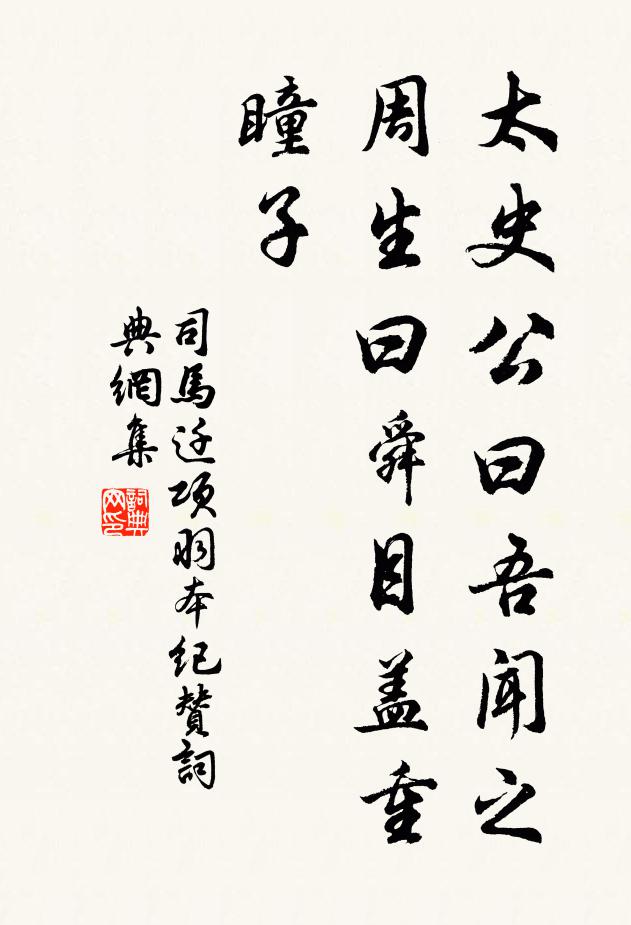 太史公曰吾聞之
周生曰舜目盖重
瞳子
司馬迁項羽本纪贊詞
典網集
詞典
网印